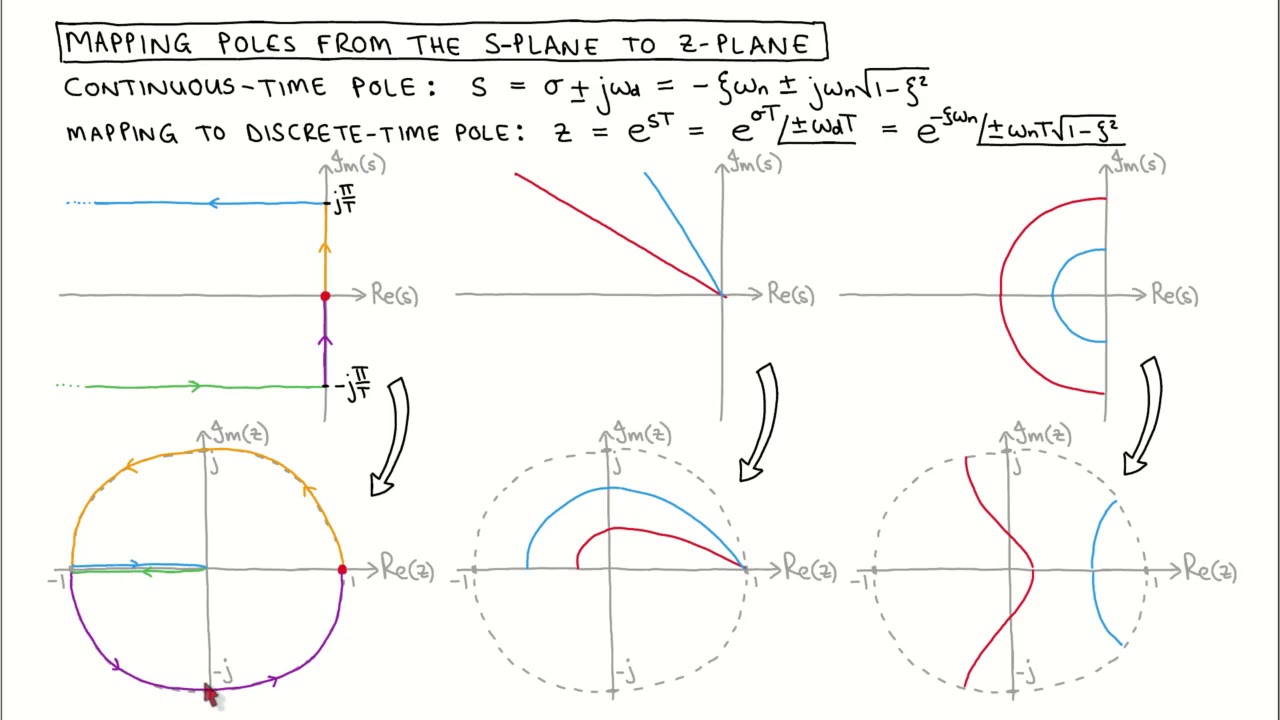 MAPPING POLES FROM THE S-PLANE TO Z-PLANE
CONTINUOUS-TIME POLE: S = σ ± jωd = -ξωn ± jωn√1-ξ²
MAPPING TO DISCRETE-TIME POLE: Z = e^sT = e^σT /±ωdT = e^-ξωn /±ωnT√1-ξ²
Im(s) Im(s) Im(s)
jπ/T
Re(s) Re(s) Re(s)
-jπ/T
Im(z) Im(z) Im(z)
j j j
-1 1 Re(z) -1 1 Re(z) -1 1 Re(z)
-j -j -j